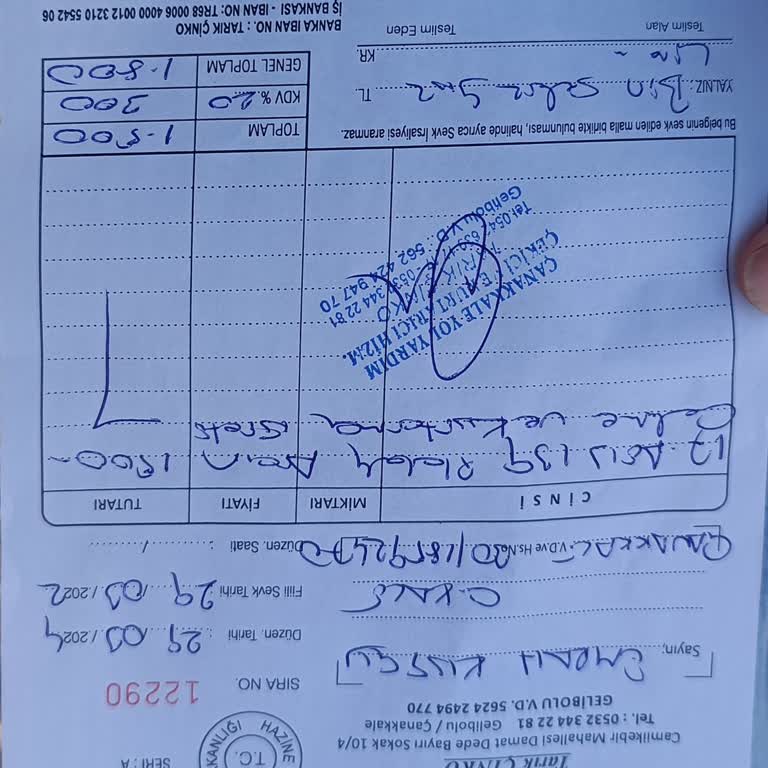 Tarık ÇİNKO
Camiikebir Mahallesi Damat Dede Bayırı Sokak 10/4
Tel. : 0532 344 22 81 Gelibolu / Çanakkale
GELİBOLU V.D. 5624 2494 770
T.C.
HAZİNE
SERİ : A
SIRA NO 12290
Sayın;
Düzen. Tarihi : 29 / 03 / 2024
Fiili Sevk Tarihi : 29 / 03 / 2022
ÇANAKKALE V.D.ve Hs.No:
Düzen. Saati : /
CİNSİ MİKTARI FİYATI TUTARI
17 139 Plakalı 1500-
Çekme ve Kurtarma
ÇANAKKALE YOL YARDIM
ÇEKİCİ VE KURTARICI HİZM.
TARIK ÇİNKO
0532 344 22 81
Gelibolu V.D.: 562 424 947 70
Bu belgenin sevk edilen malla birlikte bulunması, halinde ayrıca Sevk İrsaliyesi aranmaz.
TOPLAM 1-500
KDV % 20 300
GENEL TOPLAM 1-800
YALNIZ: Bin Sekiz Yüz TL
KR.
Teslim Alan Teslim Eden
BANKA IBAN NO. : TARIK ÇİNKO
İŞ BANKASI - IBAN NO: TR68 0006 4000 0012 3210 5542 06